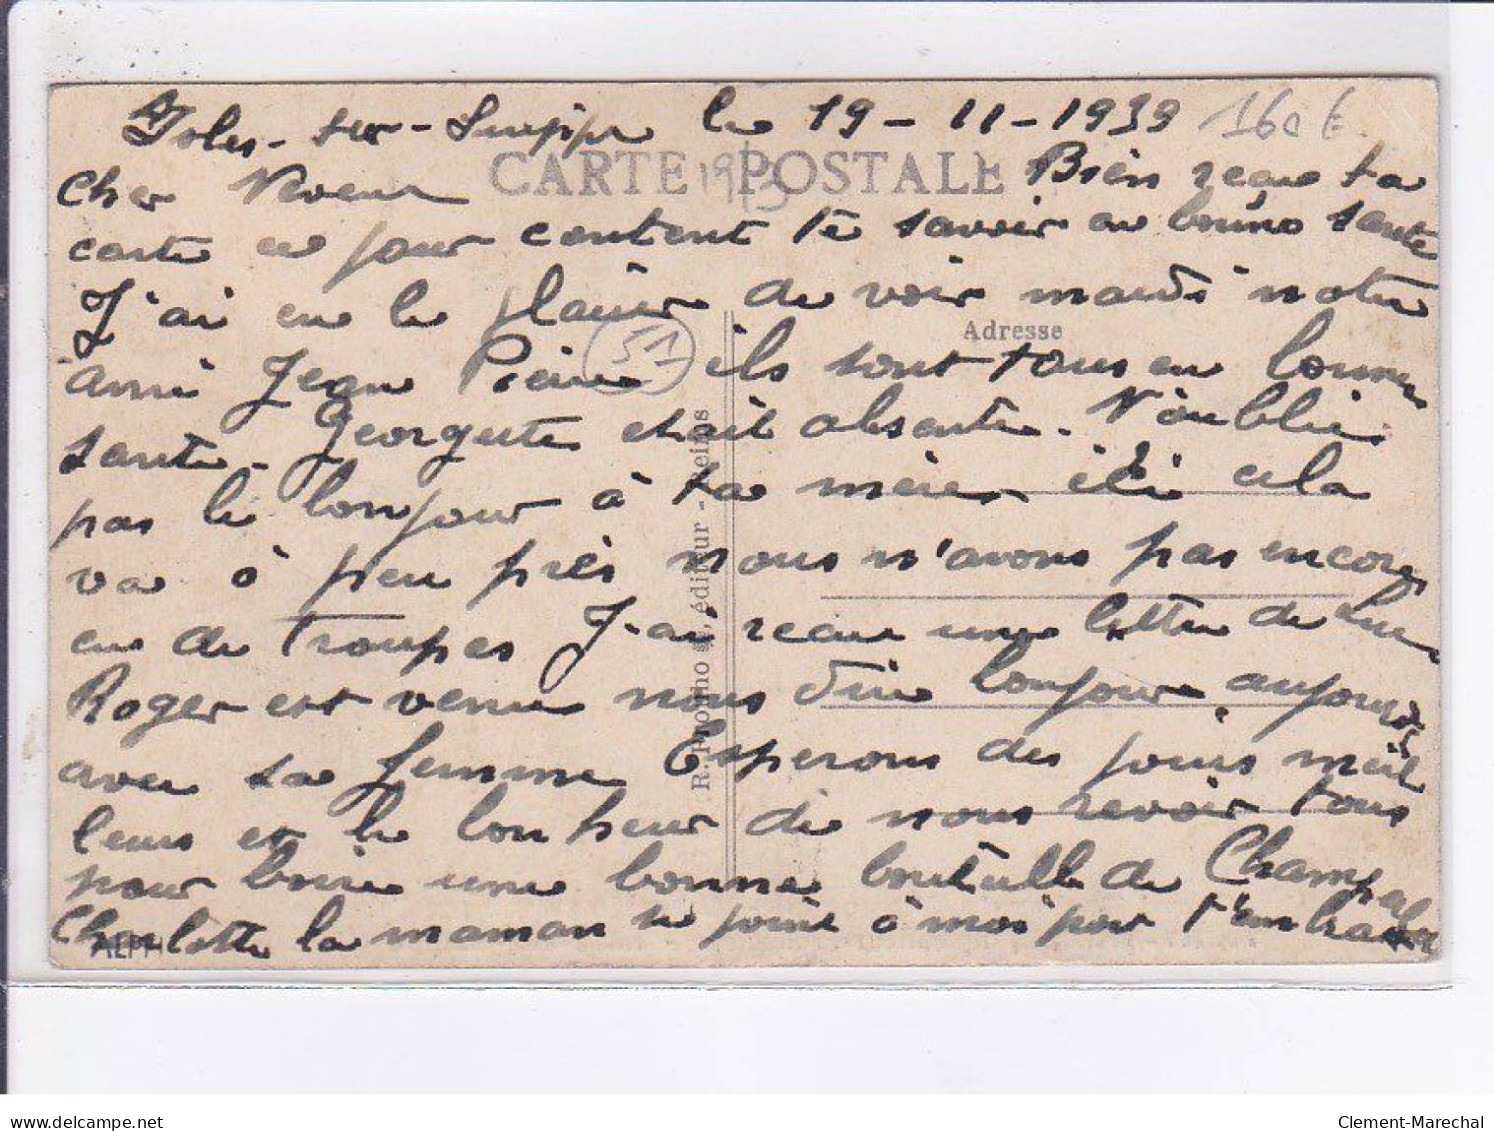 Isles-sur-Suippe le 19-11-1939 160 €
CARTE POSTALE
1913
Cher Neveux Bien reçue ta
carte ce jour content te savoir en bonne santé
J'ai eu le plaisir de voir mardi notre
Adresse
51
ami Jean Pierre ils sont tous en bonne
santé. Georgette etait absente. N'oublie
pas le bonjour à ta mère ici cela
va à peu près nous n'avons pas encore
eu de troupes J'ai recue une lettre de Luc
Roger est venue nous dire bonjour aujourd
avec sa femme Esperons des jours meil
leurs et le bonheur de nous revoir tous
pour boire une bonne bouteille de Champ
Charlotte la maman se joint à moi pour t'embrasser
ALPH
R. Protho , éditeur - Reims
delcampe.net
Clement-Marechal